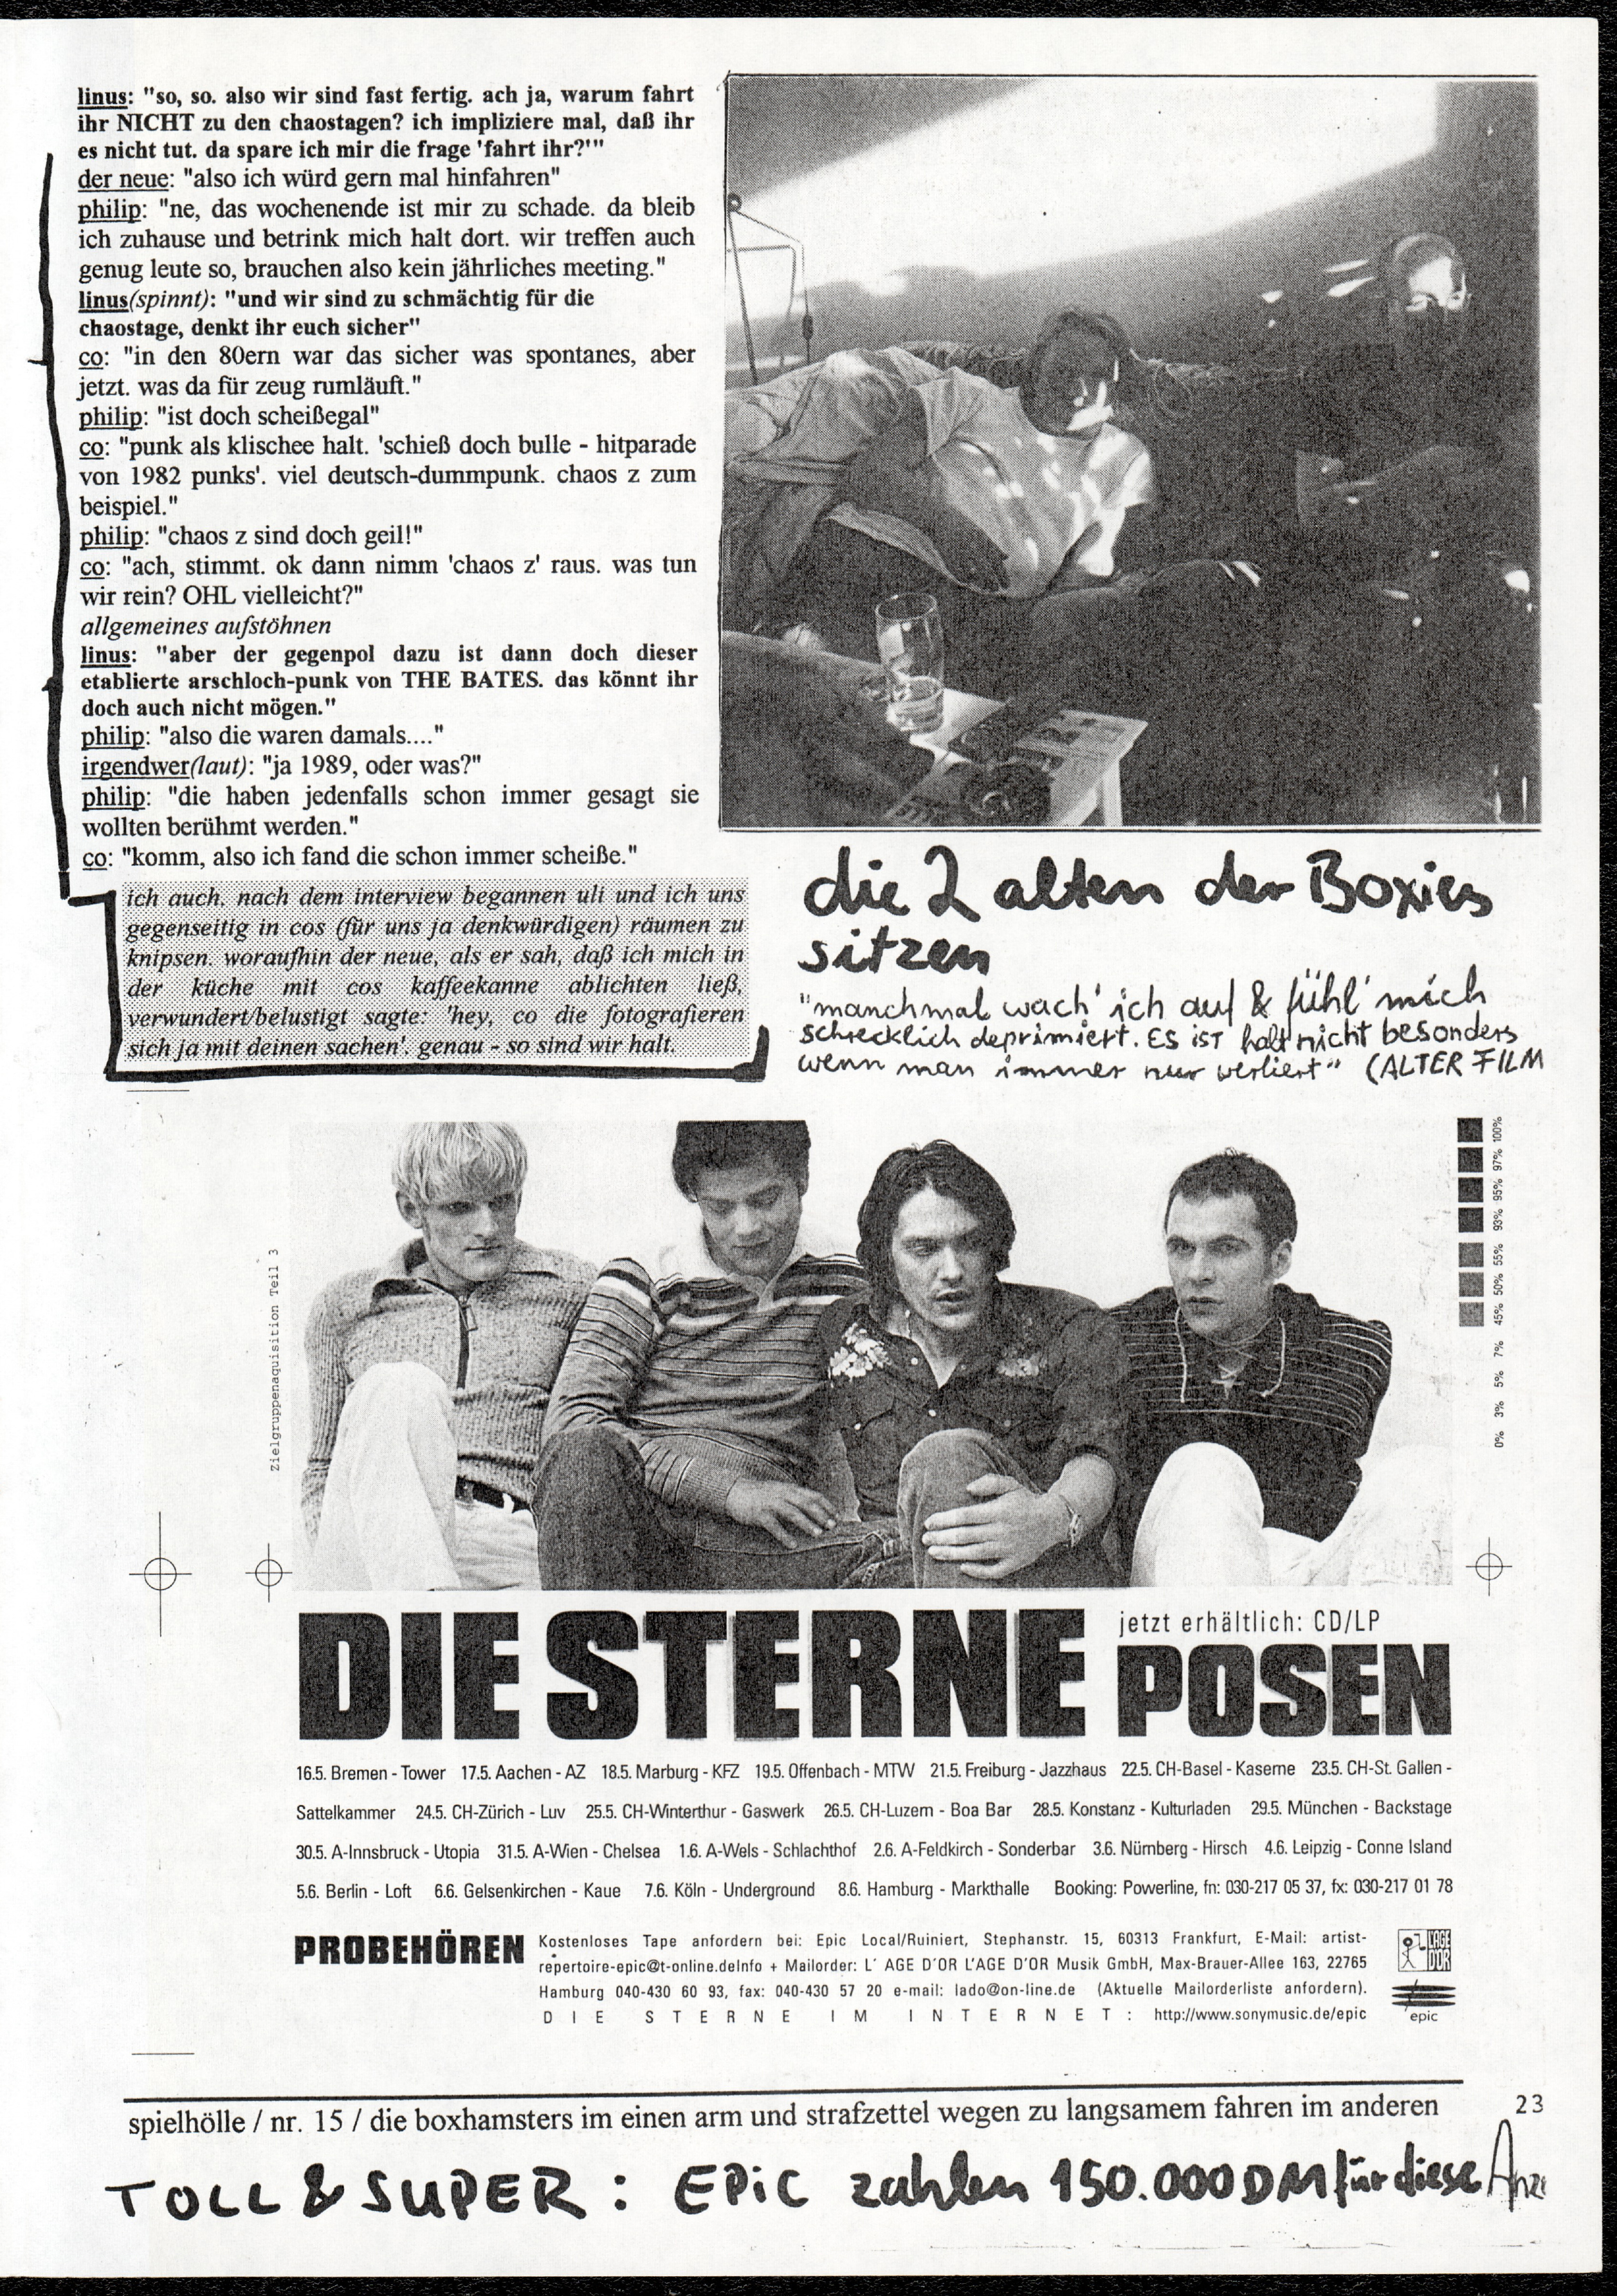 linus: "so, so. also wir sind fast fertig. ach ja, warum fahrt
ihr NICHT zu den chaostagen? ich impliziere mal, daß ihr
es nicht tut. da spare ich mir die frage 'fahrt ihr?'"
der neue: "also ich würd gern mal hinfahren"
philip: "ne, das wochenende ist mir zu schade. da bleib
ich zuhause und betrink mich halt dort. wir treffen auch
genug leute so, brauchen also kein jährliches meeting."
linus(spinnt): "und wir sind zu schmächtig für die
chaostage, denkt ihr euch sicher"
co: "in den 80ern war das sicher was spontanes, aber
jetzt. was da für zeug rumläuft."
philip: "ist doch scheißegal"
co: "punk als klischee halt. 'schieß doch bulle - hitparade
von 1982 punks'. viel deutsch-dummpunk. chaos z zum
beispiel."
philip: "chaos z sind doch geil!"
co: "ach, stimmt. ok dann nimm 'chaos z' raus. was tun
wir rein? OHL vielleicht?"
allgemeines aufstöhnen
linus: "aber der gegenpol dazu ist dann doch dieser
etablierte arschloch-punk von THE BATES. das könnt ihr
doch auch nicht mögen."
philip: "also die waren damals...."
irgendwer(laut): "ja 1989, oder was?"
philip: "die haben jedenfalls schon immer gesagt sie
wollten berühmt werden."
co: "komm, also ich fand die schon immer scheiße."
ich auch. nach dem interview begannen uli und ich uns
gegenseitig in cos (für uns ja denkwürdigen) räumen zu
knipsen. woraufhin der neue, als er sah, daß ich mich in
der küche mit cos kaffeekanne ablichten ließ,
verwundert/belustigt sagte: 'hey, co die fotografieren
sich ja mit deinen sachen'. genau - so sind wir halt.
die 2 alten der Boxies
sitzen
"manchmal wach' ich auf & fühl' mich
schrecklich deprimiert. ES iST halt nicht besonders
wenn man immer nur verliert" (ALTER FILM
Zielgruppenaquisition Teil 3
0% 3% 5% 7% 45% 50% 55% 93% 95% 97% 100%
DIE STERNE
jetzt erhältlich: CD/LP
POSEN
16.5. Bremen - Tower 17.5. Aachen - AZ 18.5. Marburg - KFZ 19.5. Offenbach - MTW 21.5. Freiburg - Jazzhaus 22.5. CH-Basel - Kaserne 23.5. CH-St. Gallen -
Sattelkammer 24.5. CH-Zürich - Luv 25.5. CH-Winterthur - Gaswerk 26.5. CH-Luzern - Boa Bar 28.5. Konstanz - Kulturladen 29.5. München - Backstage
30.5. A-Innsbruck - Utopia 31.5. A-Wien - Chelsea 1.6. A-Wels - Schlachthof 2.6. A-Feldkirch - Sonderbar 3.6. Nürnberg - Hirsch 4.6. Leipzig - Conne Island
5.6. Berlin - Loft 6.6. Gelsenkirchen - Kaue 7.6. Köln - Underground 8.6. Hamburg - Markthalle Booking: Powerline, fn: 030-217 05 37, fx: 030-217 01 78
PROBEHÖREN
Kostenloses Tape anfordern bei: Epic Local/Ruiniert, Stephanstr. 15, 60313 Frankfurt, E-Mail: artist-
repertoire-epic@t-online.deInfo + Mailorder: L' AGE D'OR L'AGE D'OR Musik GmbH, Max-Brauer-Allee 163, 22765
Hamburg 040-430 60 93, fax: 040-430 57 20 e-mail: lado@on-line.de (Aktuelle Mailorderliste anfordern).
DIE STERNE IM INTERNET: http://www.sonymusic.de/epic
L'AGE D'OR
epic
spielhölle / nr. 15 / die boxhamsters im einen arm und strafzettel wegen zu langsamem fahren im anderen
23
TOLL & SUPER: EPiC zahlen 150.000 DM für diese Anze